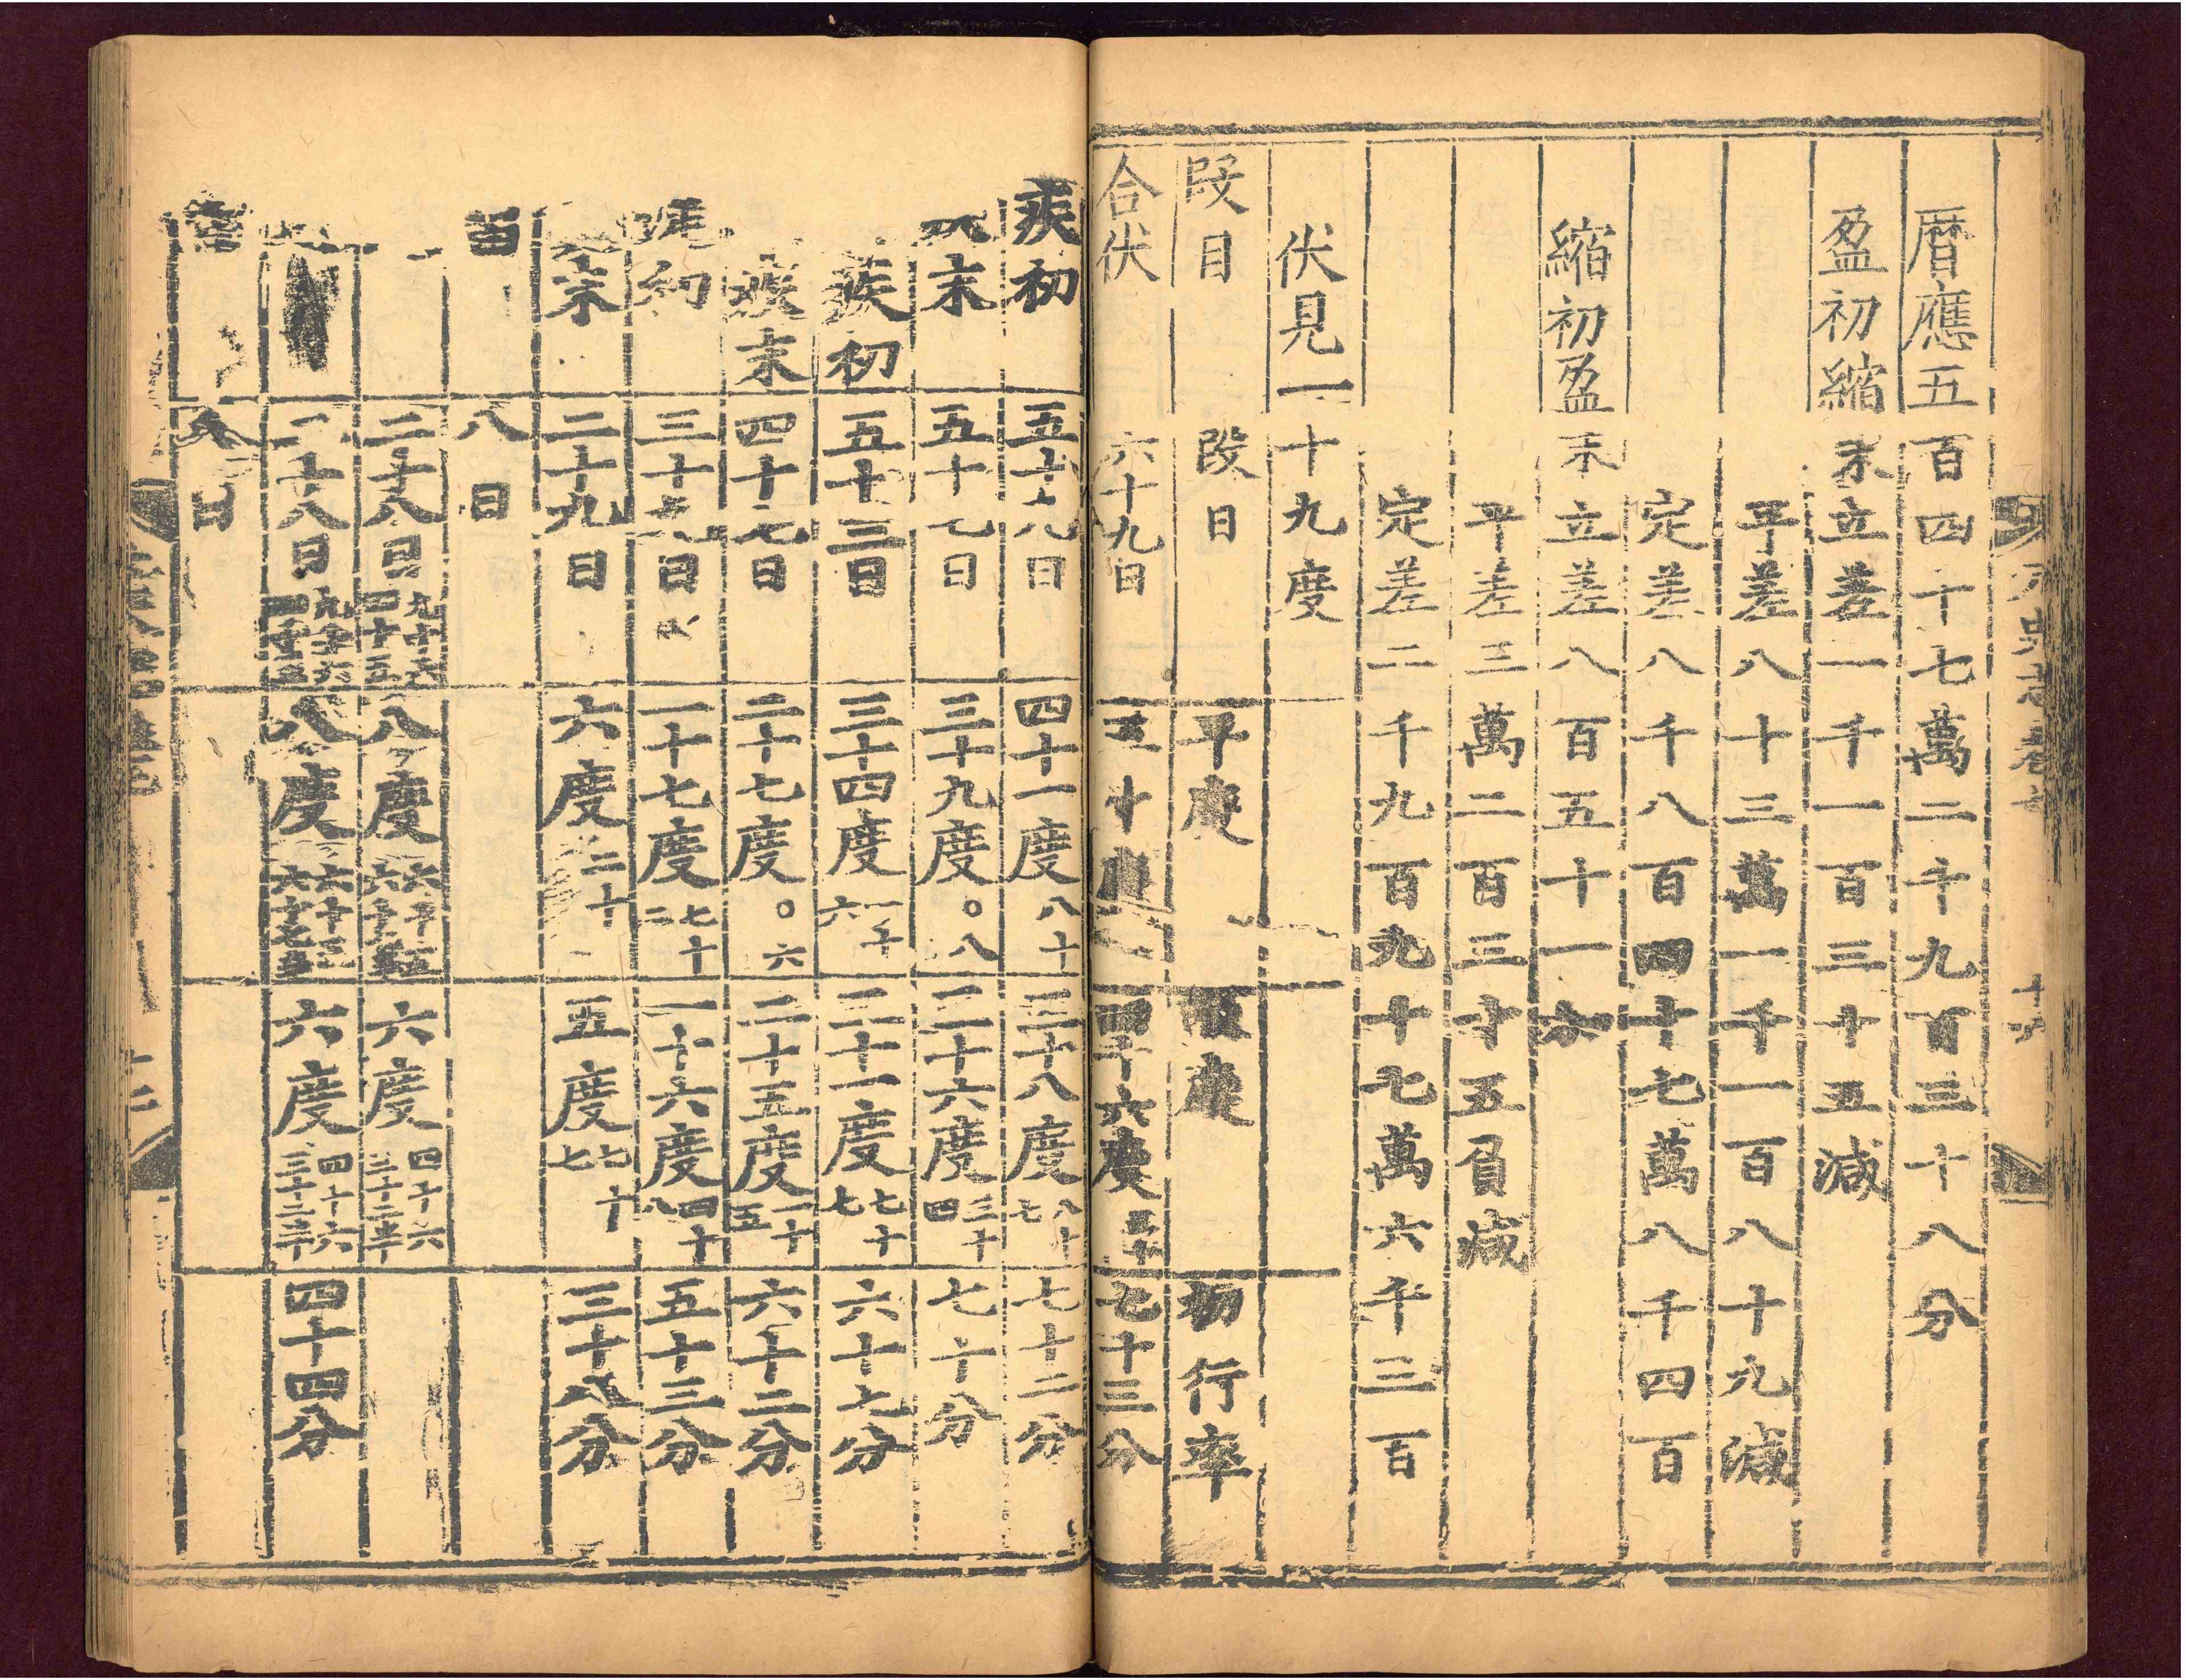 曆應五百四十七萬二千九百三十八分
盈初縮末立差一千一百三十五減
平差八十三萬一千一百八十九減
定差八千八百四十七萬八千四百
縮初盈末立差八百五十一
平差三萬二百三十五負減
定差二千九百九十七萬六千三百
伏見一十九度
段目 段日 平度 限度 初行率
合伏 六十九日 五十度 四十六度 五十 七十三分
疾初 五十八日 四十一度 八十 三十八度 八十七 七十二分
末 五十七日 三十九度〇八 三十六度 三十四 七十分
疾初 五十三日 三十四度 一十六 三十一度 七十七 六十七分
疾末 四十七日 二十七度〇六 二十五度 一十五 六十二分
初 三十九日 一十七度 七十二 一十六度 四十八 五十三分
末 二十九日 六度 二十 五度 七十七 三十八分
八日
二十八日 九十六四十五 八度 六度 四十六三十二半
二十八日 九十六四十五 八度 六度 四十六三十二半 四十四分
八日